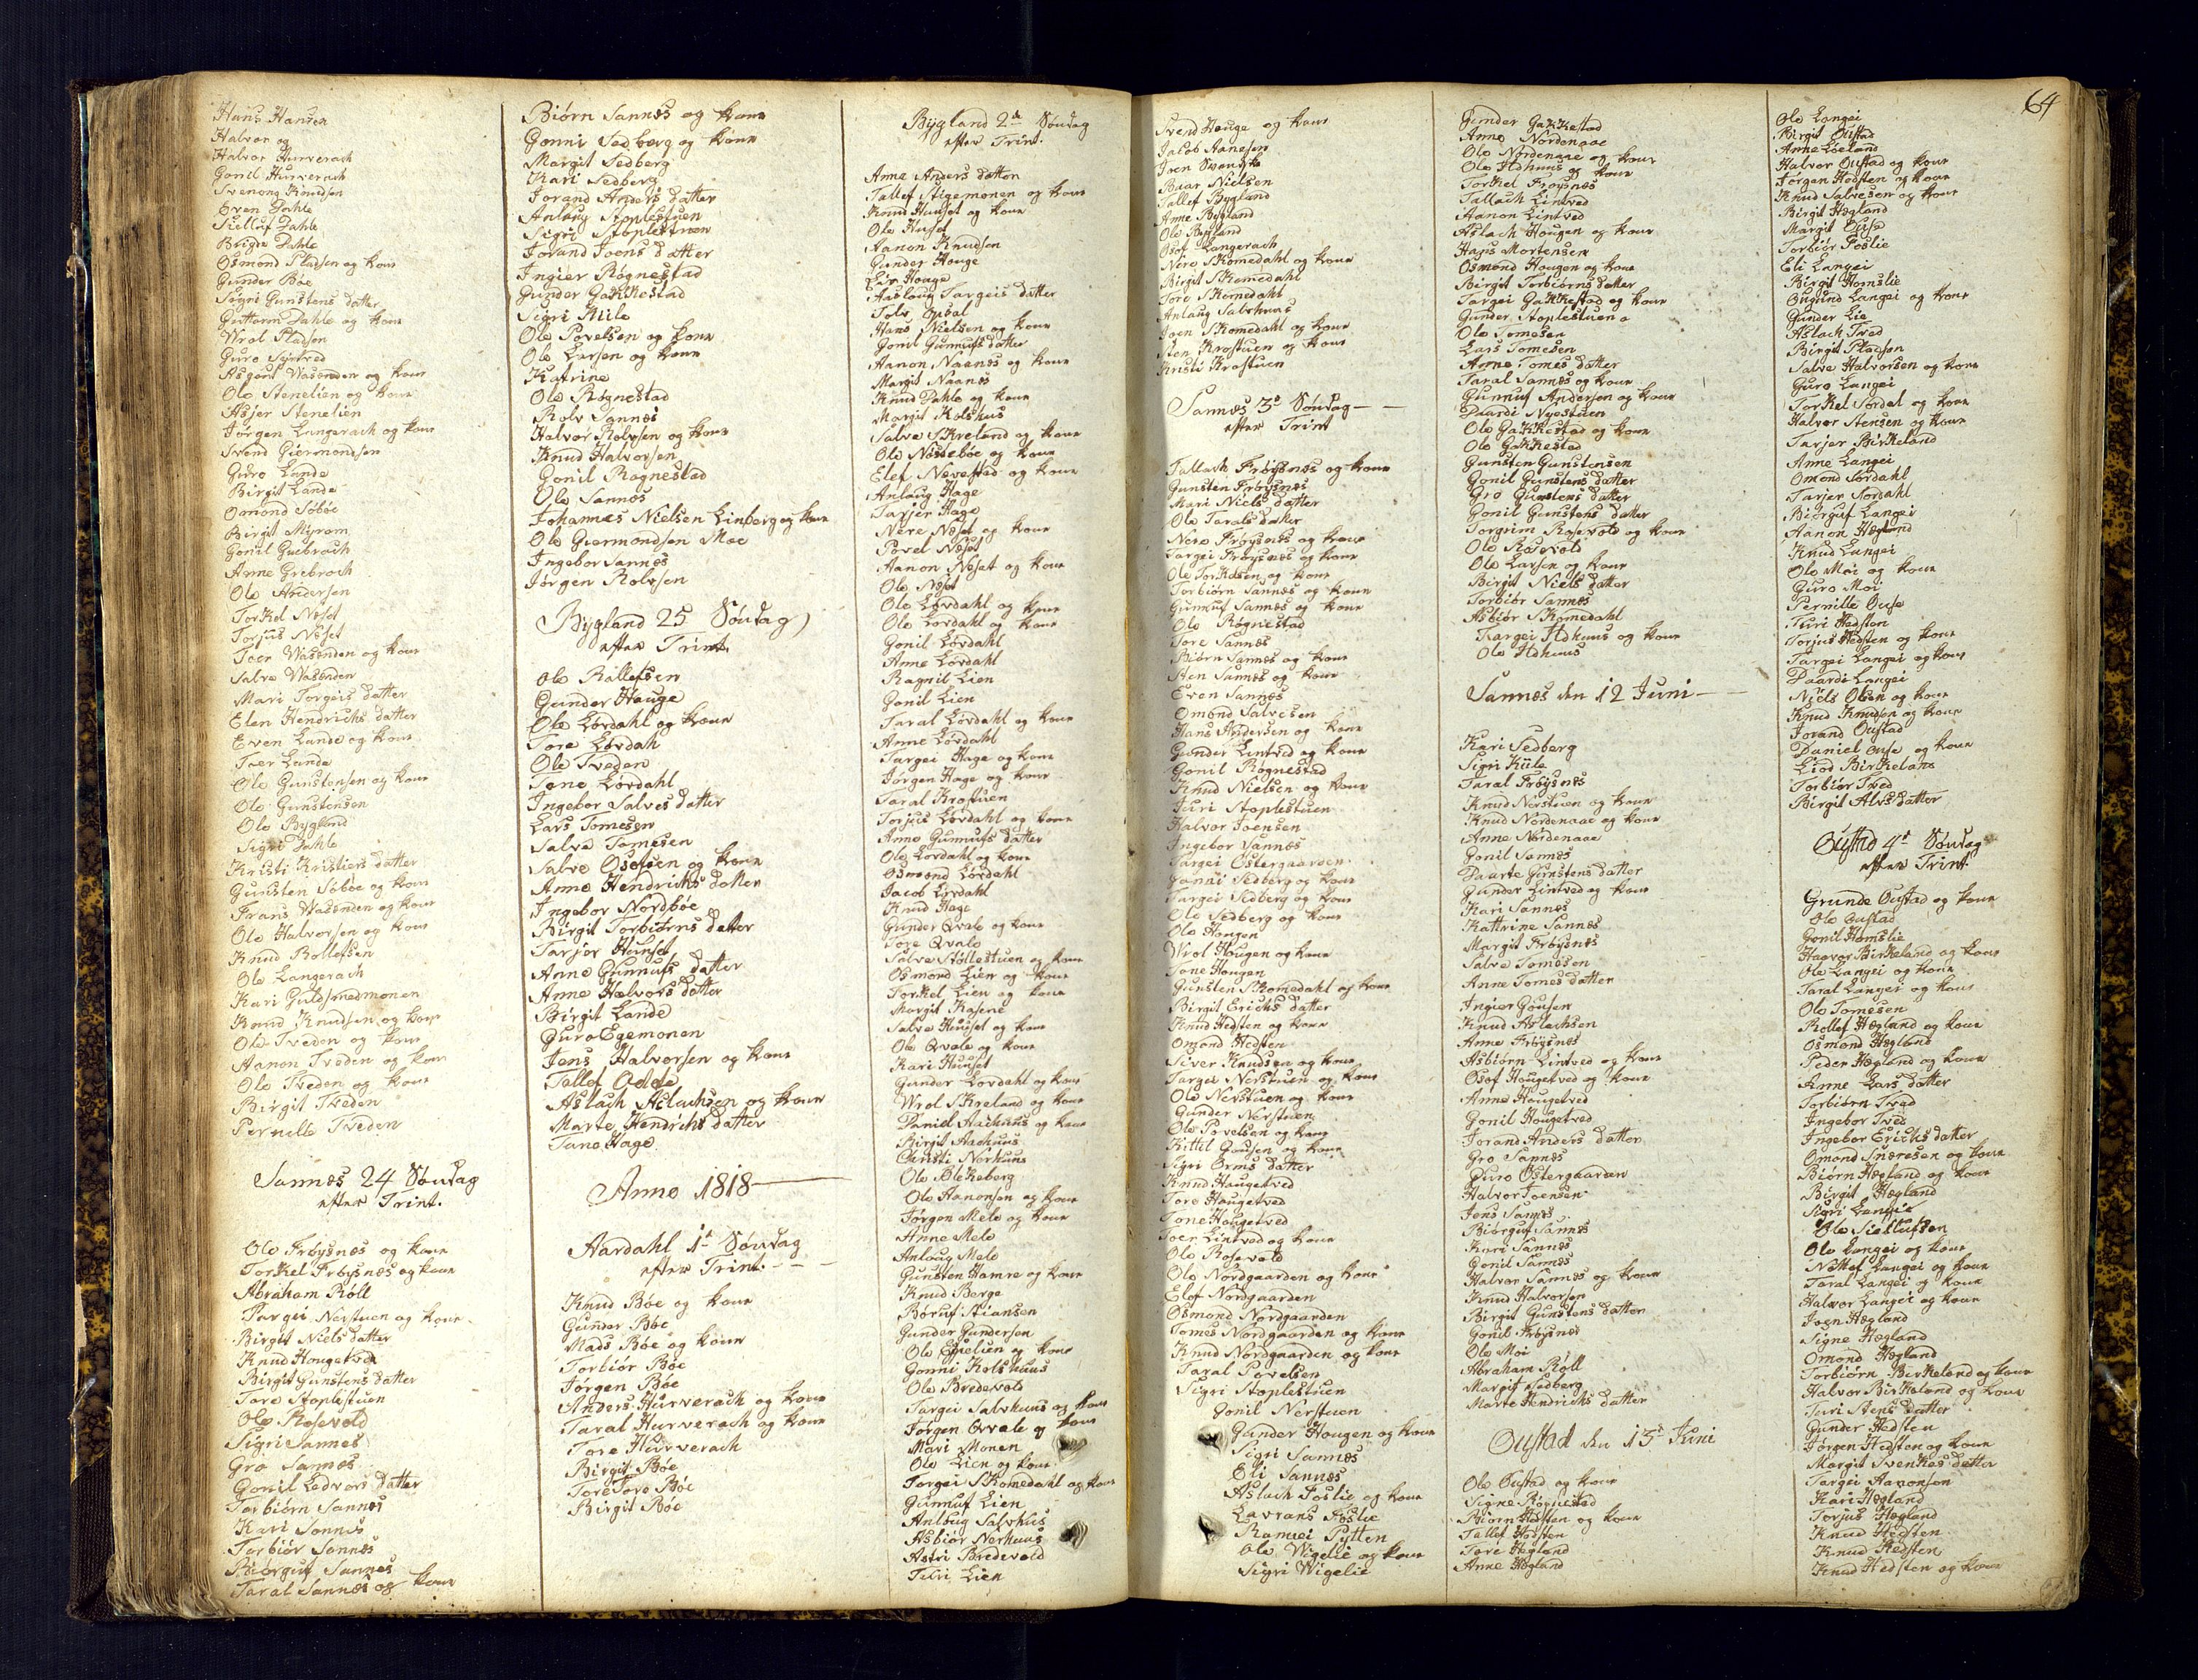 Hans Hansen
Halvor og
Halvor Hurverach
Gonil Hurverach
Svenong Knudsen
Even Dahle
Sielluf Dahle
Brigte Dahle
Osmond Pladsen og kone
Gunder Bøe
Sigri Gunstens datter
Guttorm Dahle og kone
Wrol Pladsen
Guro
Asgart Wasenden og kone
Ole Stenelien og kone
Asjer Stenelien
Jørgen Langerach og kone
Svend Giermondsen
Guro Lande
Birgit Lande
Omond Søbøe
Birgit Myrom
Gonil Grebroch
Anne Grebroch
Ole Andersen
Torkel Neset
Torjus Neset
Toer Wasenden og kone
Salve Wasenden
Mari Torgeis datter
Elen Hendrichs datter
Even Lande og kone
Toer Lande
Ole Gunstensen og kone
Ole Gunstensen
Ole Bygland
Sigri Dahle
Kristi Kristiens datter
Gunsten Søbøe og kone
Frans Wasenden og kone
Ole Halvorsen og kone
Knud Rollefsen
Ole Langerach
Kari Guldsmedmonen
Knud Knudsen og kone
Ole Tveden og kone
Aanon Tveden og kone
Ole Tveden og kone
Birgit Tveden
Pernille Tveden
Sannes 24 Søndag
efter Trint.
Ole Frøysnes og kone
Torkel Frøysnes og kone
Abraham Røll
Targei Nerstuen og kone
Birgit Niels datter
Knud Hougetved
Birgit Gunstens datter
Tore Stoplestuen
Ole Rosevold
Sigri Sannes
Gro Sannes
Gonil Ledvors datter
Torbiørn Sannes
Kari Sannes
Torbiør Sannes
Biørguf Sannes
Taral Sannes og kone
Biørn Sannes og kone
Gonni Sedberg og kone
Margit Sedberg
Kari Sedberg
Jorand Anders datter
Anlaug Stoplestuen
Sigri Stoplestuen
Jorand Joens datter
Ingier Røgnestad
Gunder Gakkestad
Sigri Kiile
Ole Povelsen og kone
Ole Larsen og kone
Katrine
Ole Røgnestad
Rolv Sannes
Halvor Rolvsen og kone
Knud Halvorsen
Gonil Rognestad
Ole Sannes
Johannes Nielsen Linberg og kone
Ole Giermondsen Moe
Ingebor Sannes
Jørgen Rolvsen
Bygland 25 Søndag
efter Trint.
Ole Rollefsen
Gunder Hauge
Ole Lørdahl og kone
Tore Lørdah
Ole Tveden
Tone Lørdahl
Ingebor Salves datter
Lars Tomesen
Salve Tomesen
Salve Osofsen og kone
Anne Hendrichs datter
Ingebor Nordbøe
Birgit Torbiørns datter
Tarjer Hunset
Anne Gunnufs datter
Anne Halvors datter
Birgit Lande
Guro Egemonen
Jens Halvorsen og kone
Tallef Odde
Aslach Aslachsen og kone
Marte Hendrichs datter
Tone Hage
Anno 1818
Aardahl 1te Søndag
efter Trint.
Knud Bøe og kone
Gunder Bøe
Mads Bøe og kone
Torbiør Bøe
Jørgen Bøe
Anders Hurverach og kone
Taral Hurverach og kone
Tore Hurverach
Birgit Bøe
Tore Bøe
Birgit Bøe
Bygland 2de Søndag
efter Trint.
Anne Anders datter
Tallef Stigemonen og kone
Knud Hunset og kone
Ole Huset
Aanon Knudsen
Gunder Houge
Liv Houge
Aaslaug Targeis datter
Tolv Opbal
Hans Nielsen og kone
Gonil Gunnufs datter
Aanon Naanes og kone
Margit Naanes
Knud Dahle og kone
Margit Kolshus
Salve Skreland og kone
Ole Nessebøe og kone
Elef Nevestad og kone
Anlaug Hage
Tarjer Hage
Nere Neset og kone
Povel Neset
Aanon Neset og kone
Ole Neset
Ole Lørdahl og kone
Ole Lørdahl og kone
Gonil Lørdahl
Anne Lørdahl
Ragnil Lien
Gonil Lien
Taral Lørdahl og kone
Anne Lørdahl
Targei Hage og kone
Jørgen Hage og kone
Taral Krostuen
Torjus Lørdahl og kone
Anne Gunnufs datter
Ole Lordahl og kone
Osmond Lørdahl
Jacob Lørdahl
Knud Hage
Gunder Qvale og kone
Tore Qvale
Salve Støllestuen og kone
Osmond Lien og kone
Torkel Lien og kone
Margit Rasene
Salve Hunset og kone
Ole Qvale og kone
Kari Hunset
Gunder Lordahl og kone
Wrol Skreland og kone
Daniel Aakhuus og kone
Birgit Aakhuus
Christi Norhuus
Ole Blekeberg
Ole Aanonsen og kone
Jørgen Melo og kone
Anne Melo
Anlaug Melo
Gunsten Hamre og kone
Knud Berge
Boruf Stiansen
Gunder Gundersen
Ole Epielien og kone
Gonni Kolshuus
Ole Bredevold
Targei Salvhuus og kone
Jørgen Qvale og kone
Mari Monen
Ole Lien og kone
Torgei Skomedahl og kone
Gunnuf Lien
Anlaug Salvhus
Asbiør Nerhuus
Astri Bredevold
Turi Lien
Svend Houge og kone
Jacob Aanesen
Iven Svenske
Baar Nielsen
Tallef Bygland
Anne Bygland
Ole Bygland
Osof Langerach
Nero Skomedahl og kone
Birgit Skomedahl
Tore Skomedahl
Anlaug Salvhuus
Joen Skomedahl og kone
Sten Krostuen og kone
Kristi Krostuen
Sannes 3de Søndag
efter Trint
Tallach Frøysnes og kone
Gunsten Frøysnes
Mari Niels datter
Ole Tarals datter
Nero Frøysnes og kone
Targei Frøysnes og kone
Ole Torkelsen og kone
Torbiørn Sannes og kone
Gunnuf Sannes og kone
Ole Røgnestad
Tore Sannes
Biørn Sannes og kone
Sten Sannes og kone
Even Sannes
Omond Salvesen
Hans Andersen og kone
Gunder Lintved og kone
Gonil Røgnestad
Knud Nielsen og kone
Turi Stoplestuen
Halvor Joensen
Ingebor Sannes
Targei Ostergaarden
Gunni Sedberg og kone
Targei Sedberg og kone
Ole Sedberg og kone
Ole Hougen
Wrol Hougen og kone
Tone Hougen
Gunsten Skomedahl og kone
Birgit Erichs datter
Knud Hedsten og kone
Omond Hedsten
Siver Knudsen og kone
Targei Nerstuen og kone
Ole Nerstuen og kone
Gunder Nerstuen
Ole Povelsen og kone
Kittil Gousen og kone
Sigri Orms datter
Knud Haugetved
Tore Haugetved
Tone Hougetved
Toer Lintved og kone
Ole Rosevold
Ole Nordgaarden og kone
Elef Nordgaarden
Osmond Nordgaarden
Tomes Nordgaarden og kone
Knud Nordgaarden og kone
Taral Povelsen
Sigri Stoplestuen
Gonil Nerstuen
Gunder Hougen og kone
Sigri Sannes
Eli Sannes
Aslach Foslie og kone
Lavrans Foslie
Ramei Pytten
Ole Wigelie og kone
Sigri Wigelie
Gunder Gakkestad
Anne Nordenaae
Ole Nordenaae og kone
Ole Adhuus og kone
Torkel Frøysnes
Tallach Lintved
Aanon Lintved
Aslach Hougen og kone
Hans Mortensen
Osmond Hougen og kone
Birgit Torbiørns datter
Targei Gakkestad og kone
Gunder Stoplestuen
Ole Tomesen
Lars Tomesen
Anne Tomes datter
Taral Sannes og kone
Gunnuf Andersen og kone
Paardi Nyestuen
Ole Gakkestad og kone
Ole Gakkestad
Gunsten Gunstensen
Gonil Gunstens datter
Gro Gunstens datter
Gonil Gunstens datter
Torgrim Rosevold og kone
Ole Rosevold
Ole Larsen og kone
Birgit Niels datter
Torbiør Sannes
Asbiør Skomedahl
Targei Adhuus og kone
Ole Adhuus
Sannes den 12 Juni
Kari Sedberg
Sigri Kiile
Taral Frøysnes
Knud Nerstuen og kone
Knud Nordenaae og kone
Anne Nordenaae
Gonil Sannes
Paarte Gunstens datter
Gunder Lintved og kone
Kari Sannes
Kathrine Sannes
Margit Frøysnes
Salve Tomesen
Anne Tomes datter
Ingier Gousen
Knud Aslachsen
Anne Frøysnes
Asbiørn Lintved og kone
Osof Hougetved og kone
Anne Hougetved
Gonil Hougetved
Jorand Anders datter
Gro Sannes
Guro Ostergaarden
Halvor Joensen
Jens Sannes
Biørguf Sannes
Kari Sannes
Gonil Sannes
Halvor Sannes og kone
Knud Halvorsen
Birgit Gunstens datter
Gonil Frøysnes
Ole Moi
Abraham Røll
Margit Sedberg
Marte Hendrichs datter
Oustad den 13de Juni
Ole Oustad og kone
Signe Røgnestad
Biørn Hedsten og kone
Tallef Hedsten
Tore Hegland
Anne Hegland
64
Ole Langei
Birgit Oustad
Anne Løeland
Halvor Oustad og kone
Jørgen Hedsten og kone
Knud Salvesen og kone
Birgit Hegland
Margit Ouse
Torbiør Foslie
Eli Langei
Birgit Homslie
Ougund Langei og kone
Gunder Lie
Aslach Tved
Birgit Pladsen
Salve Halvorsen og kone
Guro Langei
Torkel Sordal og kone
Halvor Stensen og kone
Tarjer Birkeland
Anne Langei
Omond Sordahl
Tarjer Sordahl
Biørguf Langei
Aanon Hegland
Knud Langei
Ole Moi og kone
Guro Moi
Pernille Ouse
Turi Hedsten
Torjus Hedsten og kone
Targei Langei og kone
Paardi Langei
Niels Olsen og kone
Knud Knudsen og kone
Jorand Oustad
Daniel Ouse og kone
Liod Birkeland
Torbiør Tved
Birgit Alvs datter
Oustad 4de Søndag
efter Trint.
Grunde Oustad og kone
Ole Oustad
Gonil Homslie
Hagvor Birkeland og kone
Ole Langei og kone
Taral Langei og kone
Ole Tomesen
Rollef Hegland og kone
Osmond Hegland
Peder Hegland og kone
Anne Lars datter
Torbiørn Tved
Ingebor Tved
Ingebor Erichs datter
Omond Sneresen og kone
Biørn Hegland og kone
Birgit Hegland
Sigri Langei
Ole Siellufsen
Ole Langei og kone
Nottef Langei og kone
Taral Langei og kone
Halvor Langei og kone
Joen Hegland
Signe Hegland
Omond Hegland
Torbiørn Birkeland og kone
Halvor Birkeland og kone
Turi Stens datter
Gunder Hedsten
Jørgen Hedsten og kone
Margit Svenkes datter
Targei Aanonsen
Kari Hegland
Torjus Hegland
Knud Hedsten
Knud Hedsten
Knud Hedsten og kone